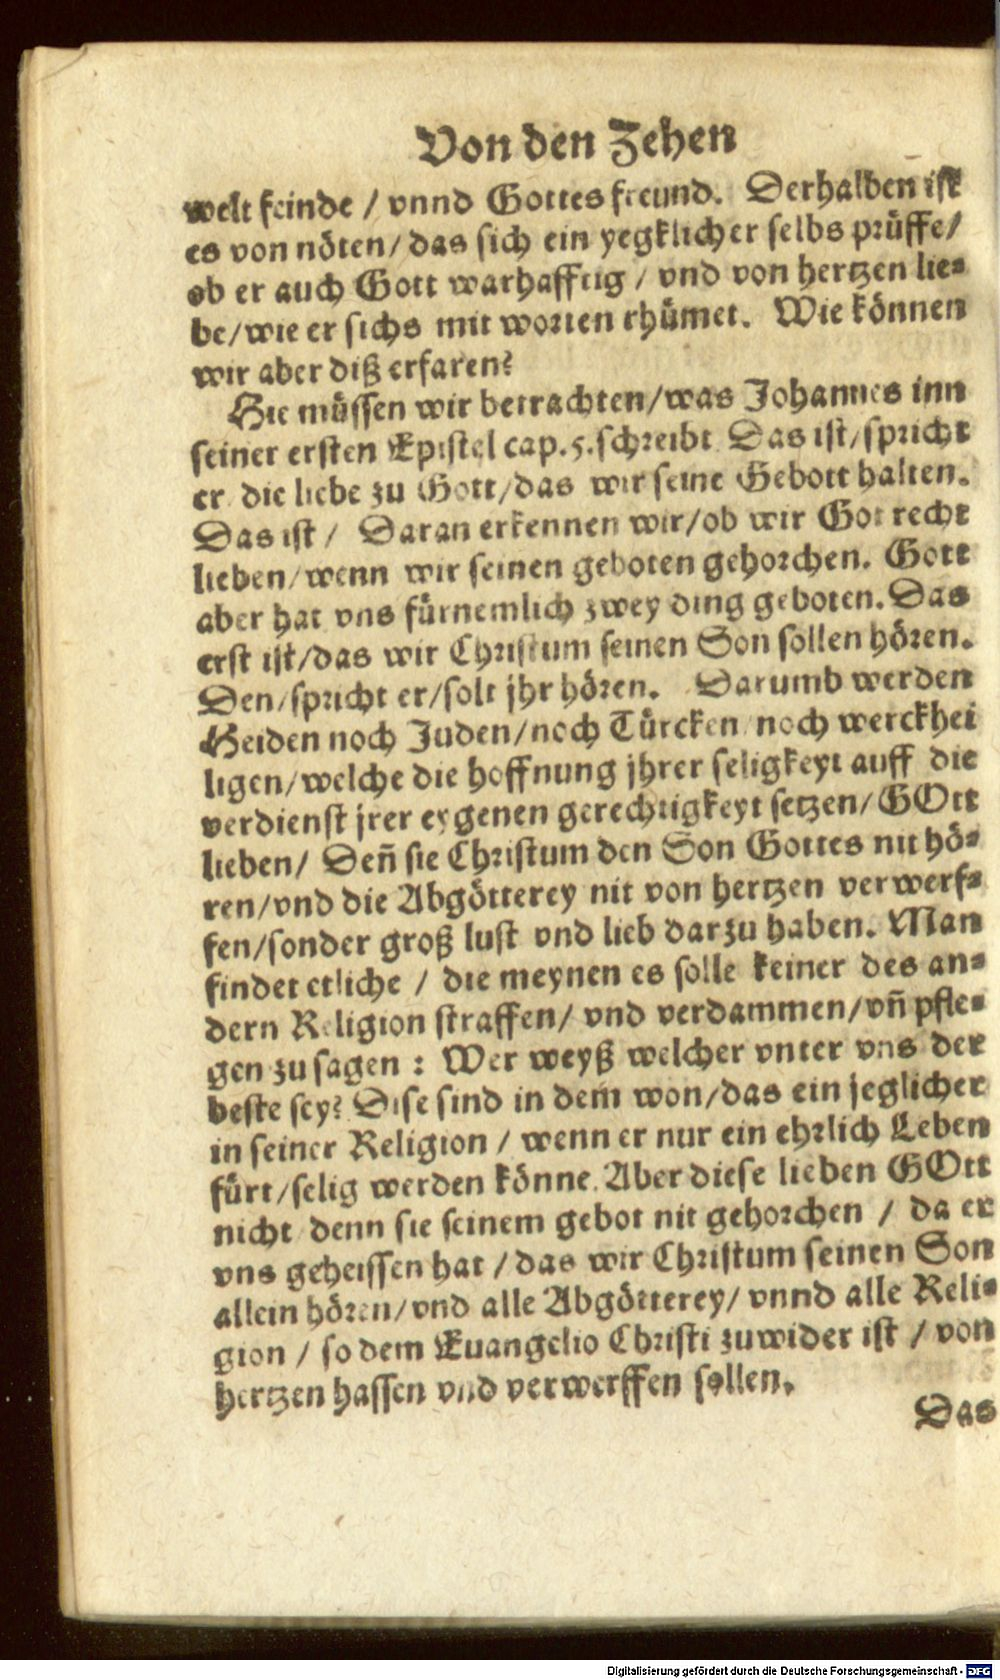 Von den Zehen
welt feinde / vnnd Gottes freund. Derhalben ist
es von nöten/ das sich ein yegklicher selbs prüffe/
ob er auch Gott warhafftig / vnd von hertzen lie-
be/wie er sichs mit worten rhümet. Wie können
wir aber diß erfaren?
Hie müssen wir betrachten/was Johannes inn
seiner ersten Epistel cap.5.schreibt Das ist/spricht
er die liebe zu Gott/das wir seine Gebott halten.
Das ist / Daran erkennen wir/ob wir Got recht
lieben/wenn wir seinen geboten gehorchen. Gott
aber hat vns fürnemlich zwey ding geboten. Das
erst ist/das wir Christum seinen Son sollen hören.
Den/spricht er/solt jhr hören. Darumb werden
Heiden noch Juden/noch Türcken noch werckhei
ligen/welche die hoffnung jhrer seligkeyt auff die
verdienst jrer eygenen gerechtigkeyt setzen/ GOtt
lieben/ Deñ sie Christum den Son Gottes nit hö-
ren/vnd die Abgötterey nit von hertzen verwerf-
fen/sonder groß lust vnd lieb darzu haben. Man
findet etliche / die meynen es solle keiner des an-
dern Religion straffen/ vnd verdammen/vñ pfle-
gen zu sagen : Wer weyß welcher vnter vns der
beste sey? Dise sind in dem won/das ein jeglicher
in seiner Religion / wenn er nur ein ehrlich Leben
fürt/selig werden könne. Aber diese lieben GOtt
nicht denn sie seinem gebot nit gehorchen / da er
vns geheissen hat / das wir Christum seinen Son
allein hören/vnd alle Abgötterey/ vnnd alle Reli-
gion / so dem Euangelio Christi zuwider ist / von
hertzen hassen vnd verwerffen sollen.
Das
Digitalisierung gefördert durch die Deutsche Forschungsgemeinschaft - DFG